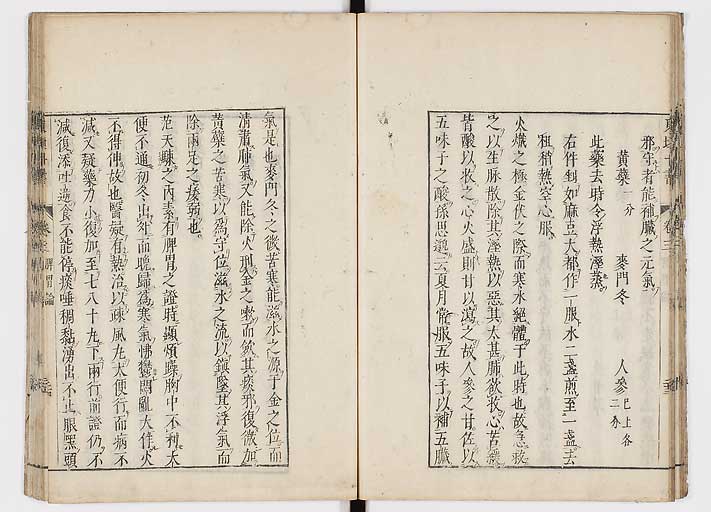 邪守者能補臟之元氣
黄蘗一分 麥門冬 人參已上各二分
此藥去時令浮熱溼蒸
右件剉如麻豆大都作一服水二盞煎至一盞去
柤稍熱空心服
火熾之極金伏之際而寒水絕體于此時也故急救
之以生脉散除其溼熱以惡其太甚肺欲收心苦緩
皆酸以收之心火盛則甘以瀉之故人參之甘佐以
五味子之酸孫思邈云夏月常服五味子以補五臟
氣是也麥門冬之微苦寒能滋水之源于金之位而
清肅肺氣又能除火刑金之嗽而斂其痰邪復微加
黄蘗之苦寒以爲守位滋水之流以鎮墜其浮氣而
除兩足之痿弱也
范天騋之内素有脾胃之證時顯煩躁胸中不利大
便不通初冬出外而晚歸爲寒氣怫鬱悶亂大作火
不得伸故也醫疑有熱治以疎風丸大便行而病不
減又疑藥力小復加至七八十丸下兩行前證仍不
減復添吐逆食不能停痰唾稠黏湧出不止眼黑頭
脾胃論